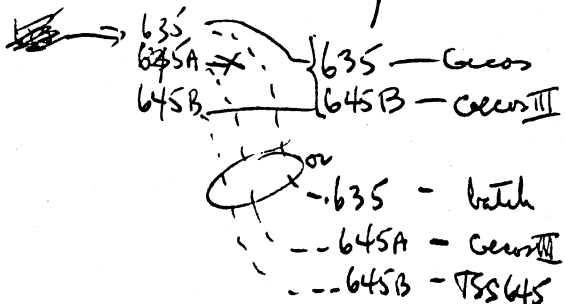 635
645A
645B
635 — Gecos
645B — Gecos III
or
635 - batch
645A - Gecos III
645B - TSS645